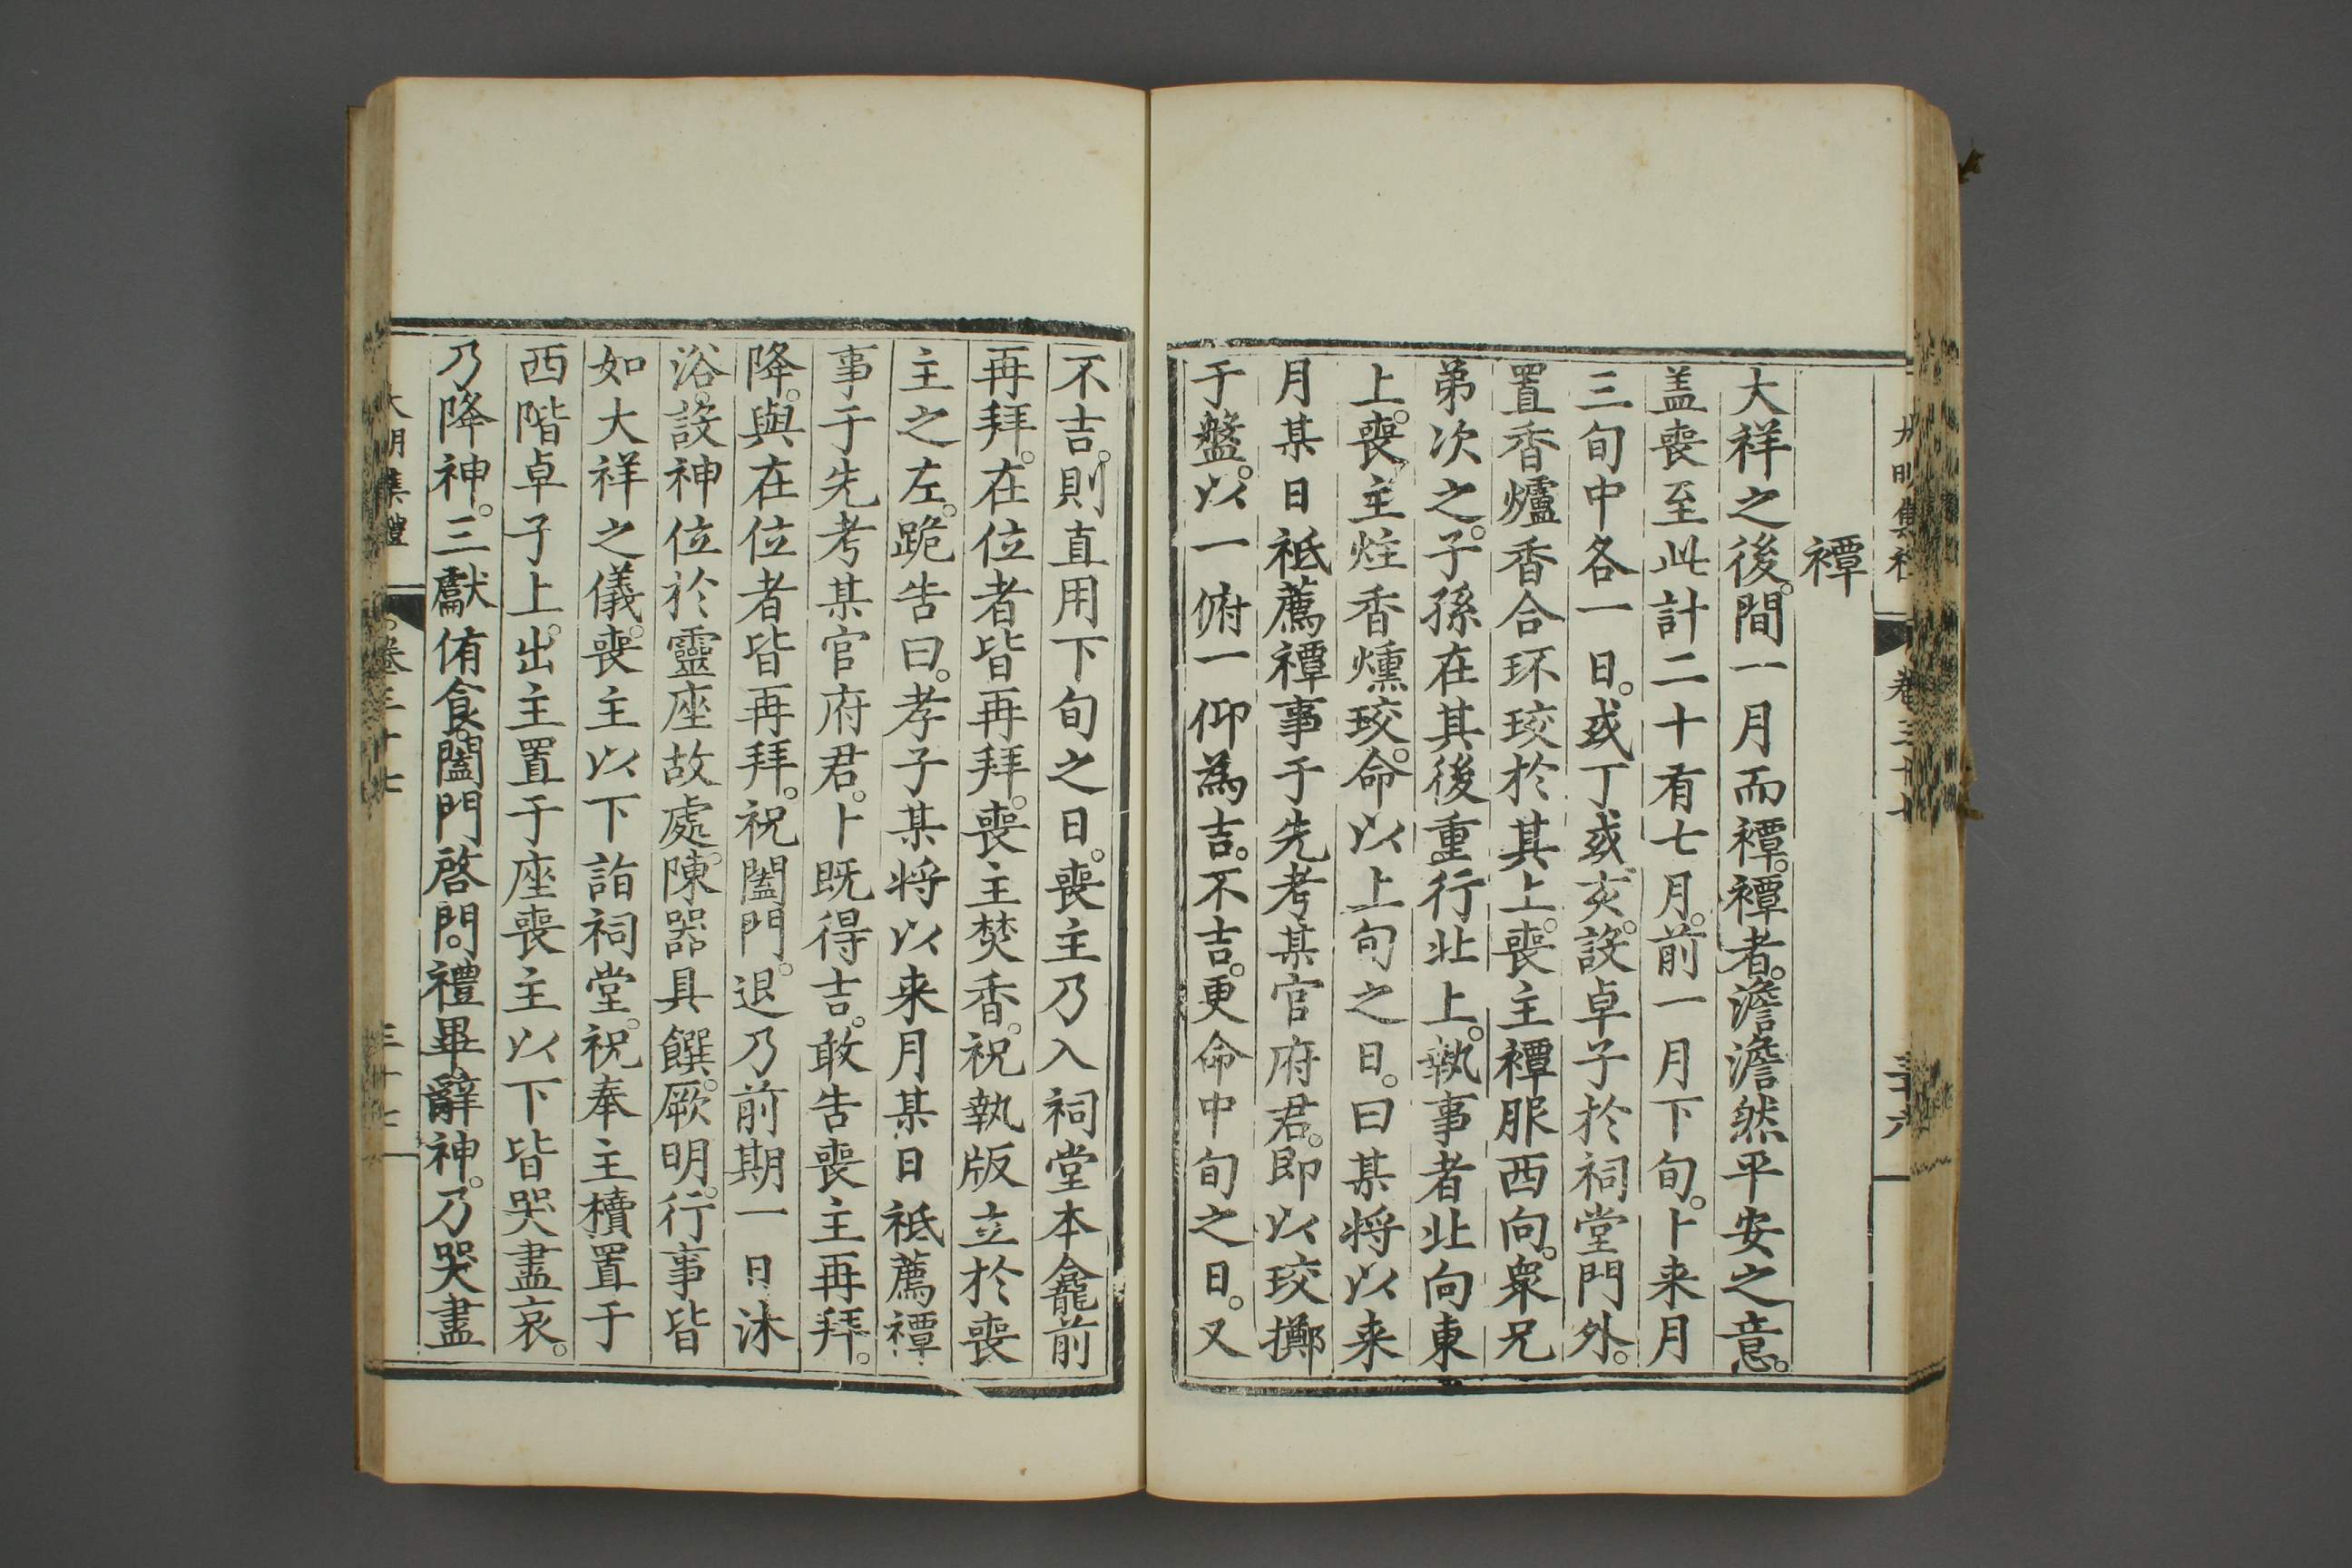 禫
大祥之後。間一月而禫。禫者。澹澹然平安之意。
盖喪至此計二十有七月。前一月下旬。卜来月
三旬中各一日。或丁或亥。設卓子於祠堂門外。
置香爐香合环珓於其上。喪主禫服西向。衆兄
弟次之。子孫在其後重行北上。執事者北向東
上。喪主炷香燻珓。命以上旬之日。曰某将以来
月某日祗薦禫事于先考某官府君。即以珓擲
于盤。以一俯一仰為吉。不吉。更命中旬之日。又
大明集禮
卷三十七
三十六
不吉。則直用下旬之日。喪主乃入祠堂本龕前
再拜。在位者皆再拜。喪主焚香。祝執版立於喪
主之左。跪告曰。孝子某将以来月某日祗薦禫
事于先考某官府君。卜既得吉。敢告喪主再拜。
降。與在位者皆再拜。祝闔門。退乃前期一日沐
浴。設神位於靈座故處。陳器具饌。厥明。行事皆
如大祥之儀。喪主以下詣祠堂。祝奉主櫝置于
西階卓子上。出主置于座喪主以下皆哭盡哀。
乃降神。三獻侑食。闔門啓門。禮畢辭神。乃哭盡
大明集禮
卷三十七
三十七